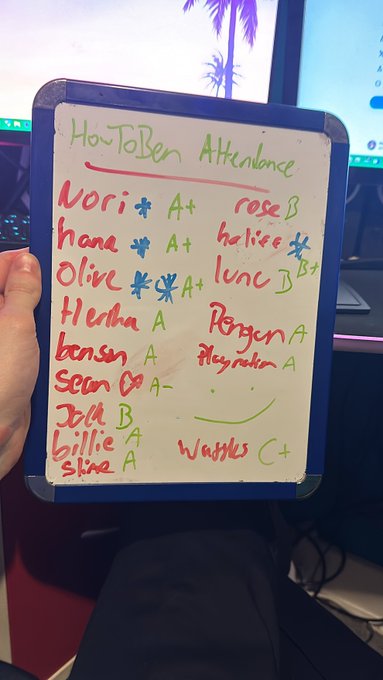 HowToBen Attendance
Nori A+
hana A+
Olive A+
Hertha A
benson A
sean A-
Jack B
billie A
slime A
rose B
haliff B+
lunc B
Pengun A
Playmation A
Waffles C+